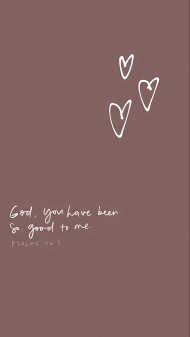 God, you have been
so good to me
PSALMS 116:7